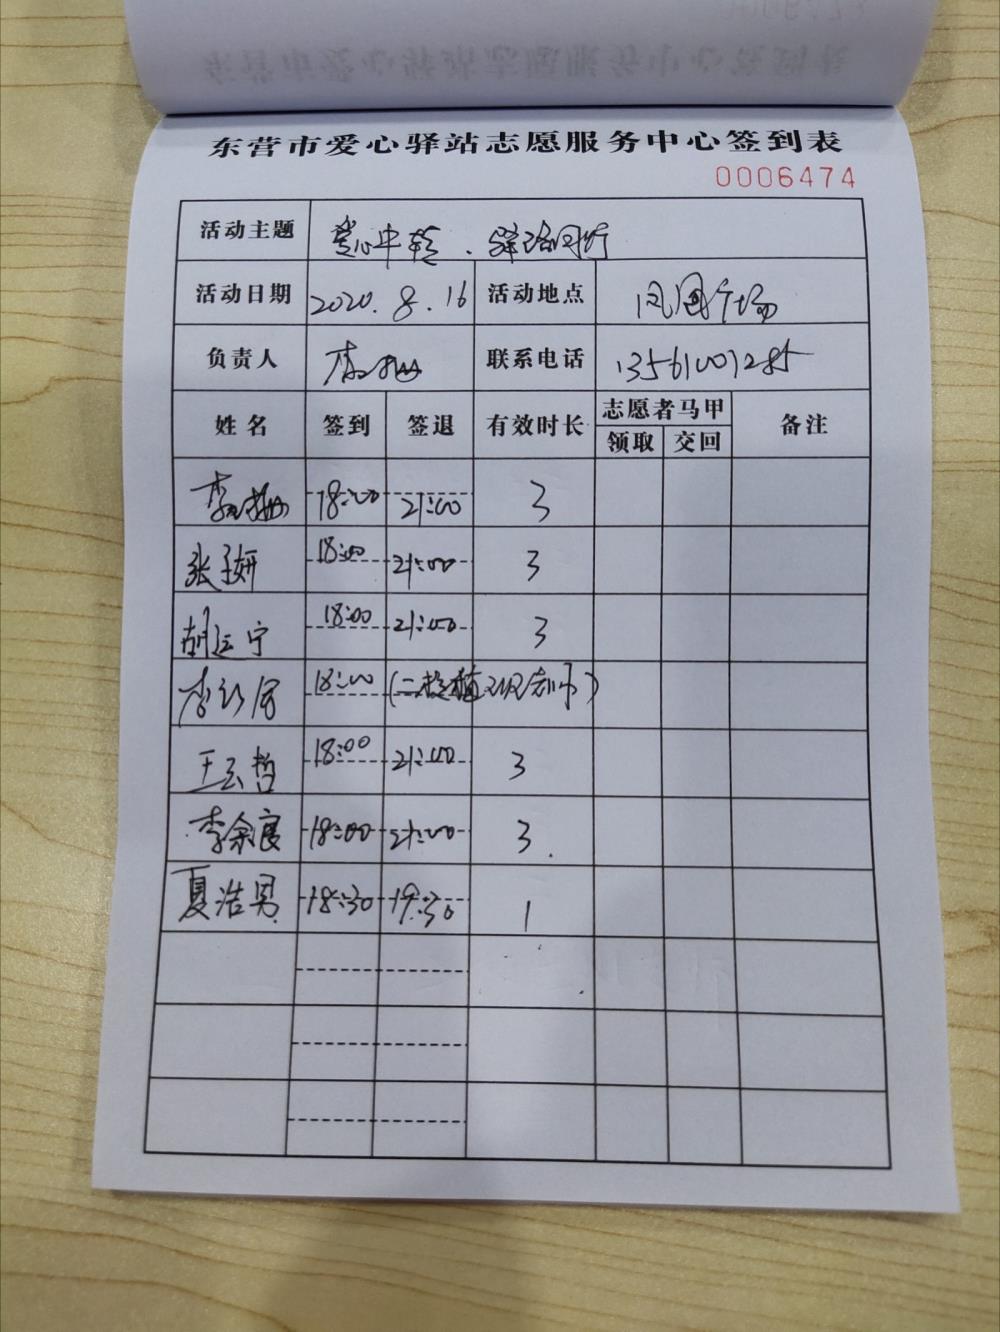 东营市爱心驿站志愿服务中心签到表
0006474
活动主题 爱心中转、驿路同行
活动日期 2020.8.16 活动地点 凤凰广场
负责人 联系电话
姓名 签到 签退 有效时长 志愿者马甲 备注
领取 交回
18:00 21:00 3
张子妍 18:00 21:00 3
胡运宁 18:00 21:00 3
18:00
王云哲 18:00 21:00 3
李余良 18:00 21:00 3
夏浩男 18:30 19:30 1